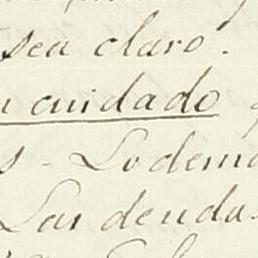 sea claro.
cuidado
s - Lo dema
Las deudas